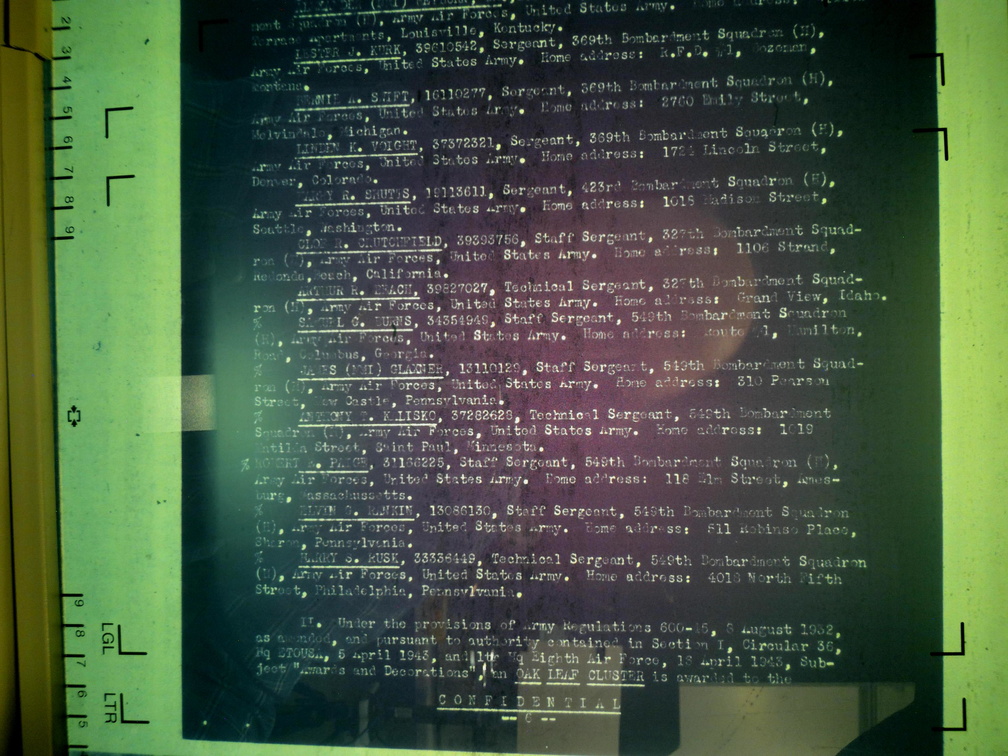 ment Squadron (H), Army Air Forces, United States Army. Home address:
Terrace Apartments, Louisville, Kentucky.
LESTER J. KURK, 39610542, Sergeant, 369th Bombardment Squadron (H),
Army Air Forces, United States Army. Home address: R.F.D. #1, Bozeman,
Montana.
A. SWIFT, 16110277, Sergeant, 369th Bombardment Squadron (H),
Army Air Forces, United States Army. Home address: 2760 Emily Street,
Melvindale, Michigan.
LINDEN K. VOIGHT, 37372321, Sergeant, 369th Bombardment Squadron (H),
Army Air Forces, United States Army. Home address: 1724 Lincoln Street,
Denver, Colorado.
LEROY R. SHUTTS, 19113611, Sergeant, 423rd Bombardment Squadron (H),
Army Air Forces, United States Army. Home address: 1018 Madison Street,
Seattle, Washington.
R. CRUTCHFIELD, 39393756, Staff Sergeant, 327th Bombardment Squad-
ron (H), Army Air Forces, United States Army. Home address: 1106 Strand,
Redondo Beach, California.
ARTHUR R. 39827027, Technical Sergeant, 327th Bombardment Squad-
ron (H), Army Air Forces, United States Army. Home address: Grand View, Idaho.
% SAMUEL G. BURNS, 34354949, Staff Sergeant, 549th Bombardment Squadron
(H), Army Air Forces, United States Army. Home address: Route #1, Hamilton,
Road, Columbus, Georgia.
% JAMES (NMI) GLAXNER, 13110129, Staff Sergeant, 549th Bombardment Squad-
ron (H), Army Air Forces, United States Army. Home address: 310 Pearson
Street, New Castle, Pennsylvania.
% ANTHONY T. KALISKO, 37282628, Technical Sergeant, 549th Bombardment
Squadron (H), Army Air Forces, United States Army. Home address: 1019
Street, Saint Paul, Minnesota.
% ROBERT A. PAIGE, 31166225, Staff Sergeant, 549th Bombardment Squadron (H),
Army Air Forces, United States Army. Home address: 118 Elm Street, Ames-
burg, Massachussetts.
% ELVIN G. RANKIN, 13086130, Staff Sergeant, 549th Bombardment Squadron
(H), Army Air Forces, United States Army. Home address: 511 Robinso Place,
Sharon, Pennsylvania.
% HARRY S. RUSK, 33336449, Technical Sergeant, 549th Bombardment Squadron
(H), Army Air Forces, United States Army. Home address: 4018 North Fifth
Street, Philadelphia, Pennsylvania.
II. Under the provisions of Army Regulations 600-45, 8 August 1932,
as amended, and pursuant to authority contained in Section I, Circular 36,
Hq ETOUSA, 5 April 1943, and ltr Hq Eighth Air Force, 18 April 1943, Sub-
ject "Awards and Decorations", an OAK LEAF CLUSTER is awarded to the
C O N F I D E N T I A L
2 3 4 5 6 7 8 9
9 8 7 6 5
LGL
LTR